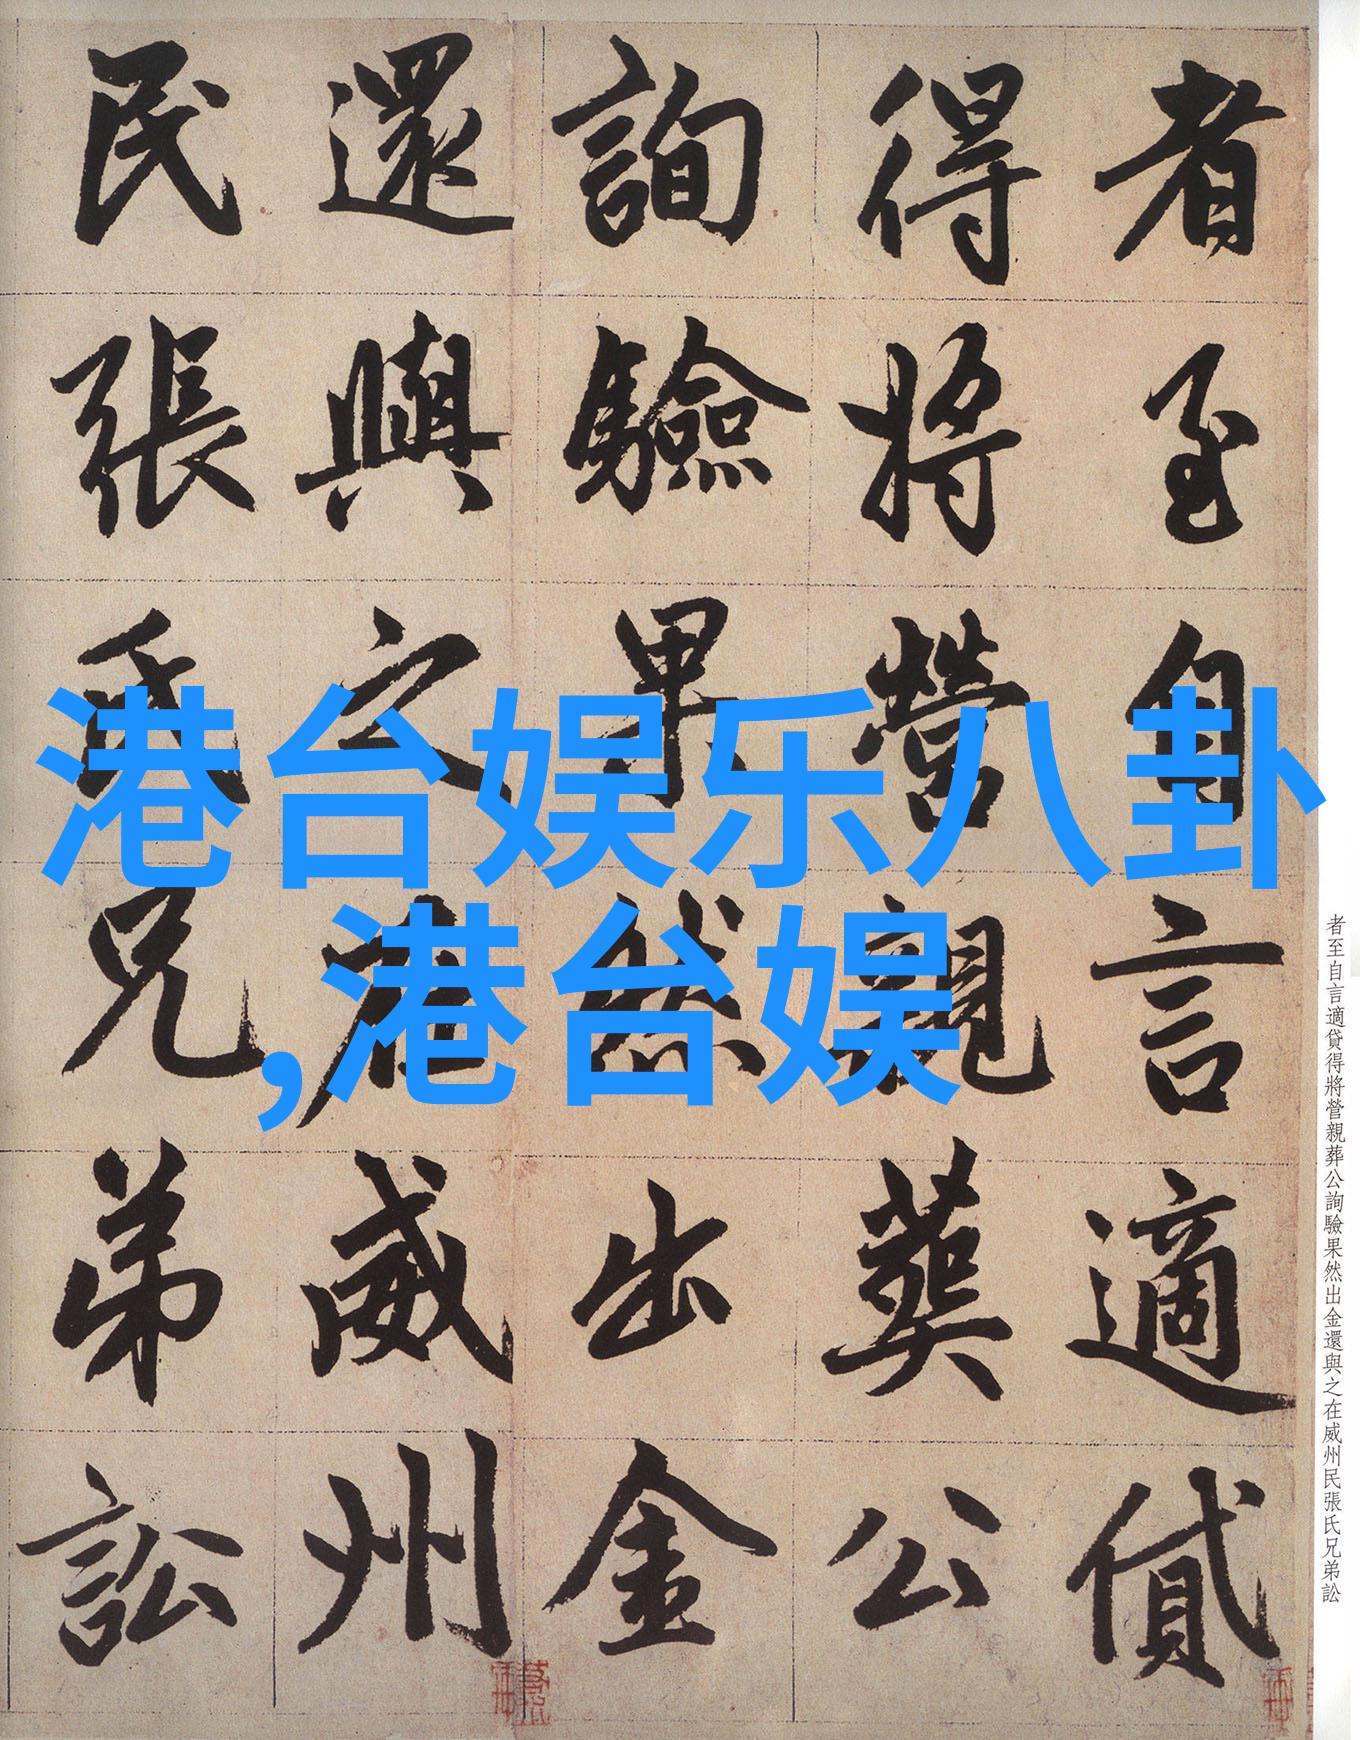 者至自言適貸
得將營親葬公
詢驗果然出金
還與之在威州
民張氏兄弟訟
港台娱乐八卦
,港台娱
者至自言適貸得將營親葬公詢驗果然出金還與之在威州民張氏兄弟訟